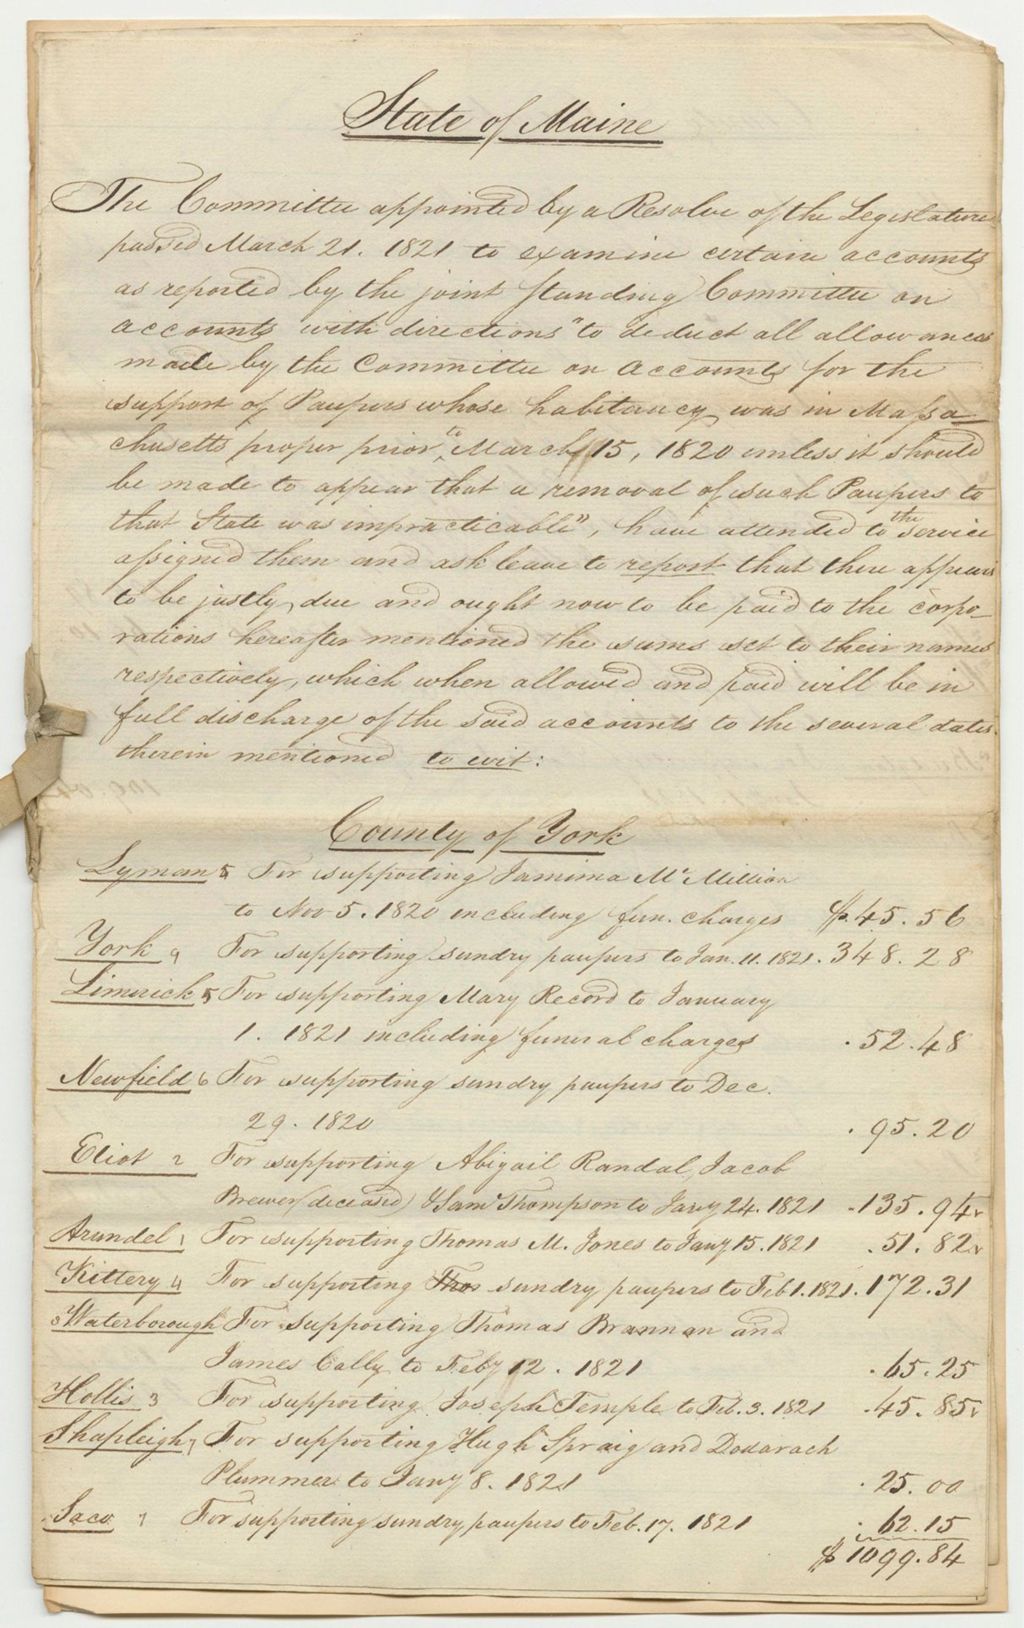 State of Maine
The Committee appointed by a Resolve of the Legislature
passed March 21. 1821 to examine certain accounts
as reported by the joint standing Committee on
accounts with directions "to deduct all allowances
made by the Committee on Accounts for the
support of Paupers whose habitancy was in Massa
chusetts proper prior to March 15, 1820 unless it should
be made to appear that a removal of such Paupers to
that State was impracticable", have attended to the service
assigned them and ask leave to report that there appears
to be justly due and ought now to be paid to the corpo-
rations hereafter mentioned the sums set to their names
respectively, which when allowed and paid will be in
full discharge of the said accounts to the several dates
therein mentioned to wit:
County of York
Lyman 5 For supporting Jamima McMillian
to Nov 5. 1820 including fun. charges $.45.56
York 9 For supporting sundry paupers to Jan. 11. 1821. 348.28
Limerick 5 For supporting Mary Record to January
1. 1821 including funeral charges .52.48
Newfield 6 For supporting sundry paupers to Dec.
29. 1820 .95.20
Eliot 2 For supporting Abigail Randal, Jacob
Brewer (deceased) & Saml Thompson to Jany 24. 1821 .135.94
Arundel 1 For supporting Thomas M. Jones to Jany 15. 1821 .51.82
Kittery 4 For supporting Thos sundry paupers to Feb 1. 1821. 172.31
Waterborough For supporting Thomas Brannan and
James Cally to Feby 12. 1821 .65.25
Hollis 3 For supporting Joseph Temple to Feb. 3. 1821 .45.85
Shapleigh For supporting Hugh Spraig and Dodarach
Plummer to Jany 8. 1821 .25.00
Saco 7 For supporting sundry paupers to Feb. 17. 1821 .62.15
$1099.84